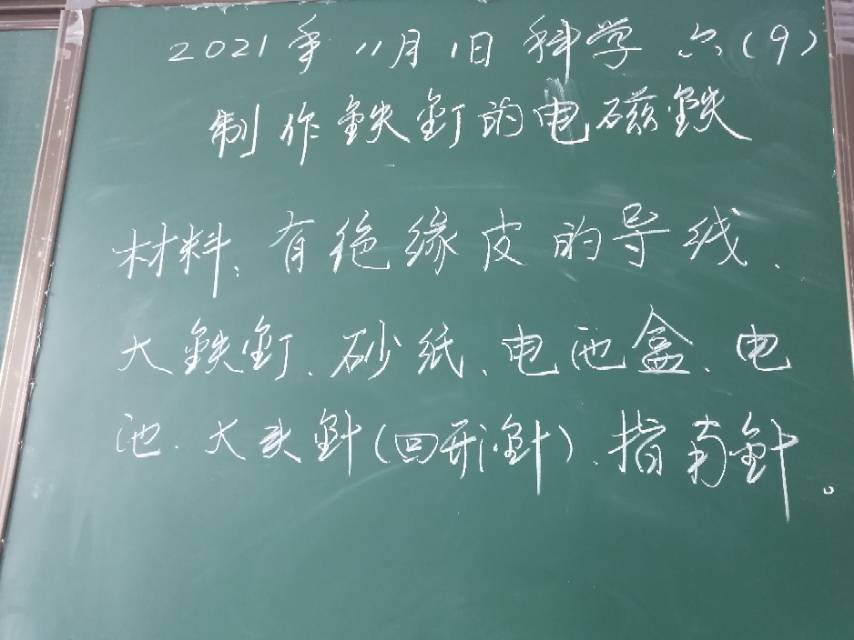 2021年11月1日 科学 六(9)
制作铁钉的电磁铁
材料:有绝缘皮的导线、
大铁钉、砂纸、电池盒、电
池、大头针(回形针)、指南针。